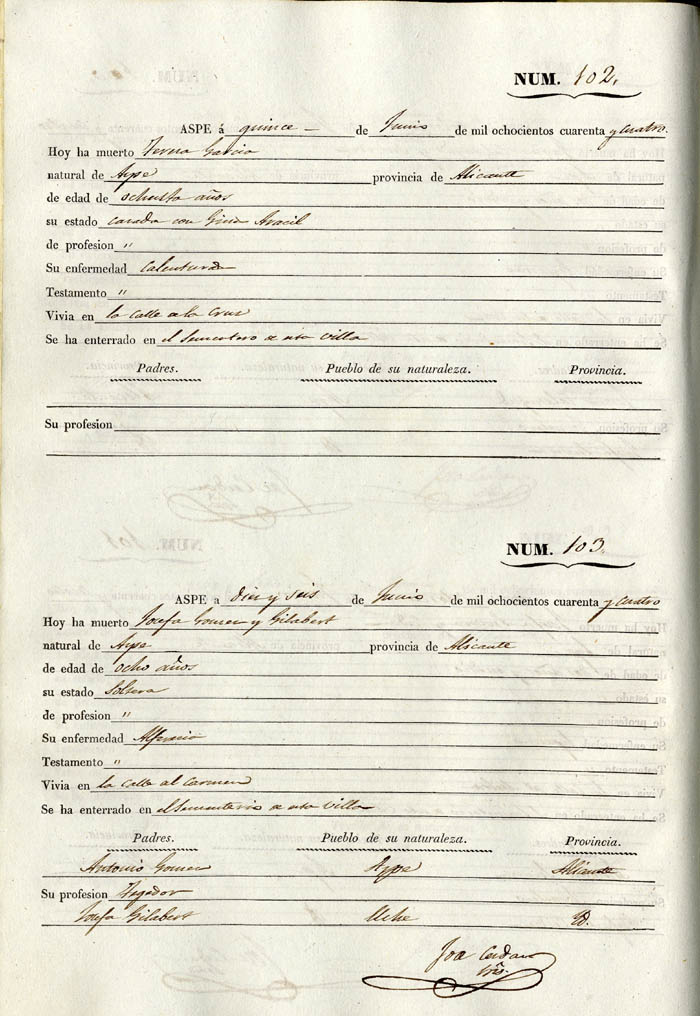 NUM. 102.
ASPE á quince de Junio de mil ochocientos cuarenta y cuatro.
Hoy ha muerto Teresa Garcia
natural de Aspe provincia de Alicante
de edad de ochenta años
su estado casada con Ginés Aracil
de profesion "
Su enfermedad Calentura
Testamento "
Vivia en la calle de la Cruz
Se ha enterrado en el de esta villa
Padres. Pueblo de su naturaleza. Provincia.
Su profesion
NUM. 103.
ASPE a diez y seis de Junio de mil ochocientos cuarenta y cuatro
Hoy ha muerto Josefa Gomez y Gilabert
natural de Aspe provincia de Alicante
de edad de ocho años
su estado Soltera
de profesion "
Su enfermedad
Testamento "
Vivia en la calle del Carmen
Se ha enterrado en el Sementerio de esta villa
Padres. Pueblo de su naturaleza. Provincia.
Antonio Gomez Aspe Alicante
Su profesion Tegedor
Josefa Gilabert Elche Yd.
Joa Cerdan